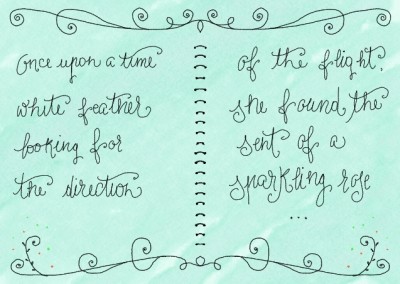 Once upon a time
white feather
looking for
the direction
of the flight,
she found the
sent of a
sparkling rose
...